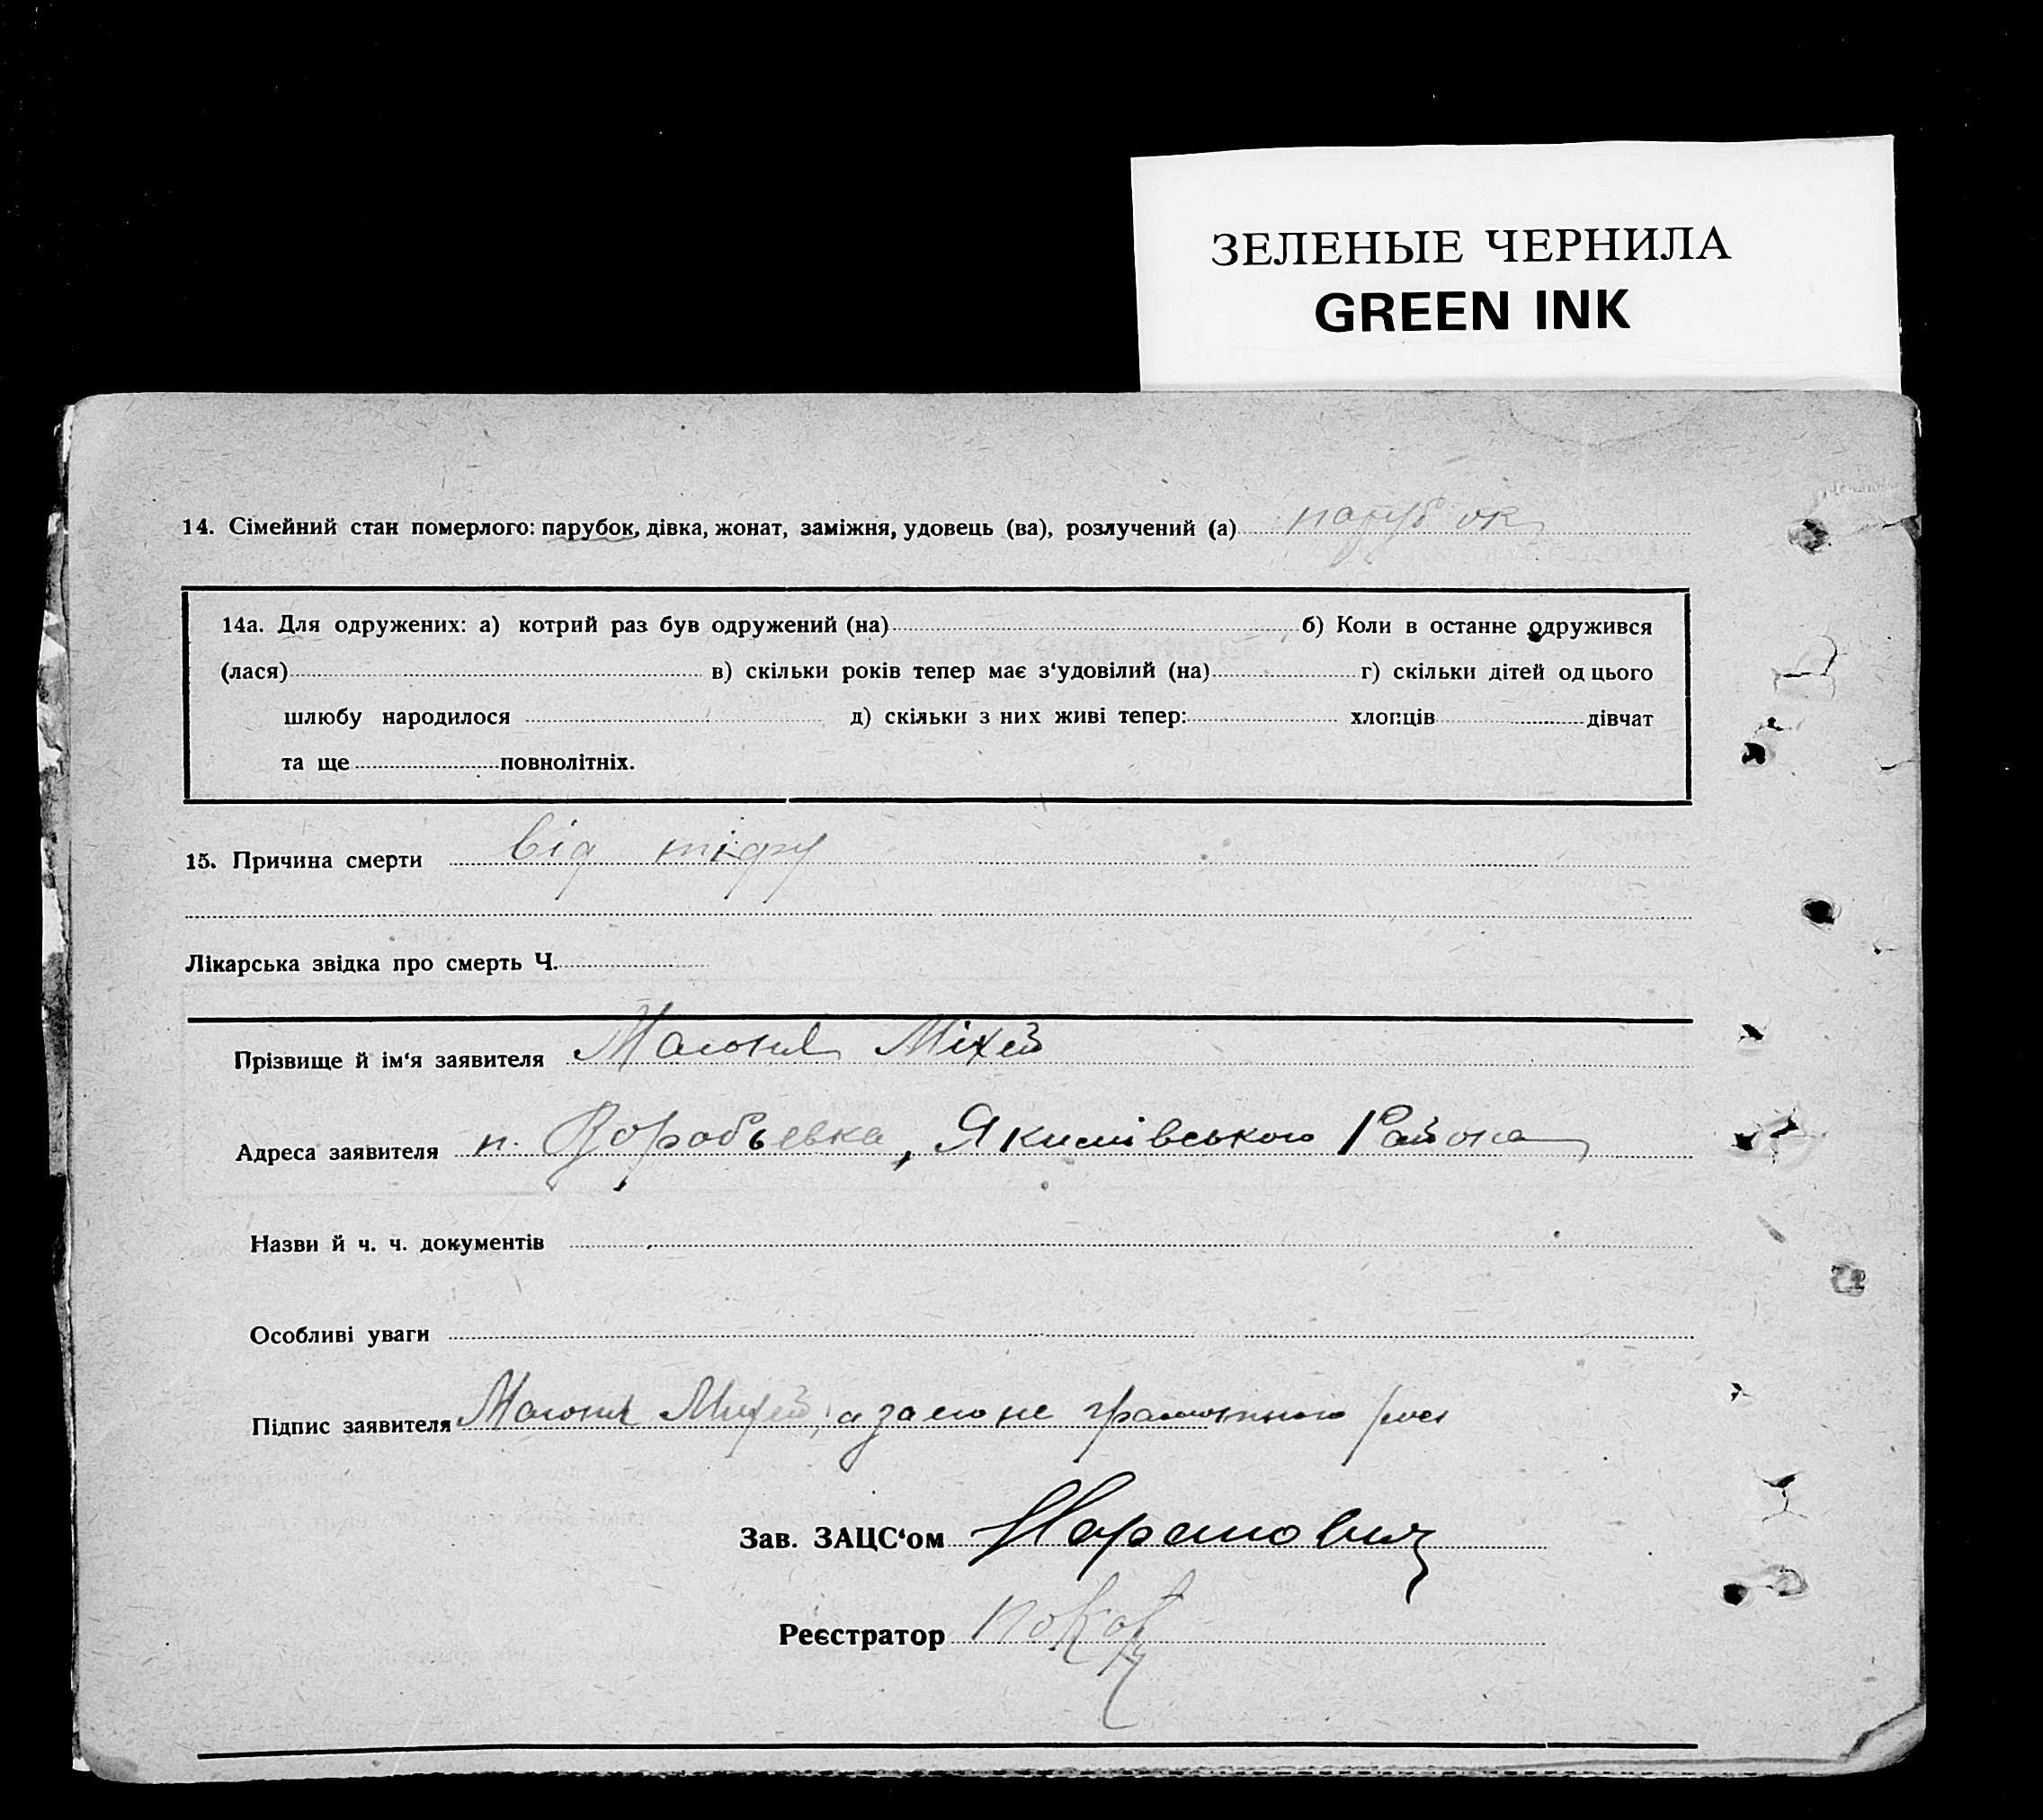 ЗЕЛЕНЫЕ ЧЕРНИЛА
GREEN INK
14. Сімейний стан померлого: парубок, дівка, жонат, заміжня, удовець (ва), розлучений (а) парубок
14а. Для одружених: а) котрий раз був одружений (на) б) Коли в останнє одружився
(лася) в) скільки років тепер має з‘удовілий (на) г) скільки дітей од цього
шлюбу народилося д) скільки з них живі тепер: хлопців дівчат
та ще повнолітніх.
15. Причина смерти від тіфу
Лікарська звідка про смерть Ч.
Прізвище й ім‘я заявителя Міхей
Адреса заявителя п. Воробьевка, Якимівського Района
Назви й ч. ч. документів
Особливі уваги
Підпис заявителя Михей, а за його не грамотного
Зав. ЗАЦС‘ом
Реєстратор